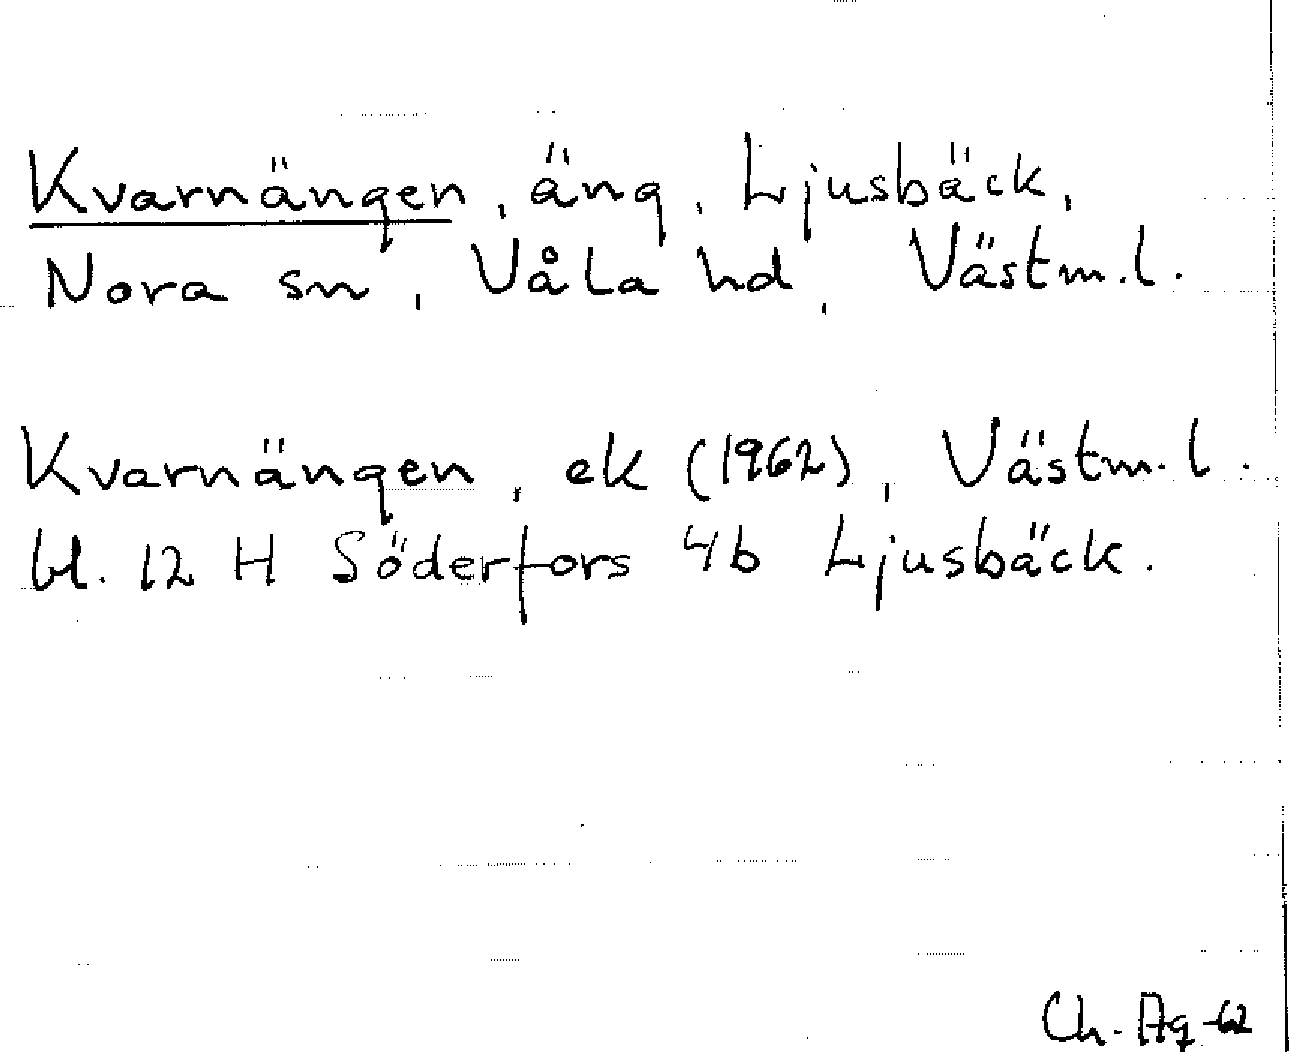 Kvarnängen, äng, Ljusbäck,
Nora sn, Våla hd, Västm.l.
Kvarnängen, ek (1962), Västm.l.
bl. 12 H Söderfors 4b Ljusbäck.
Ch. Ag -62